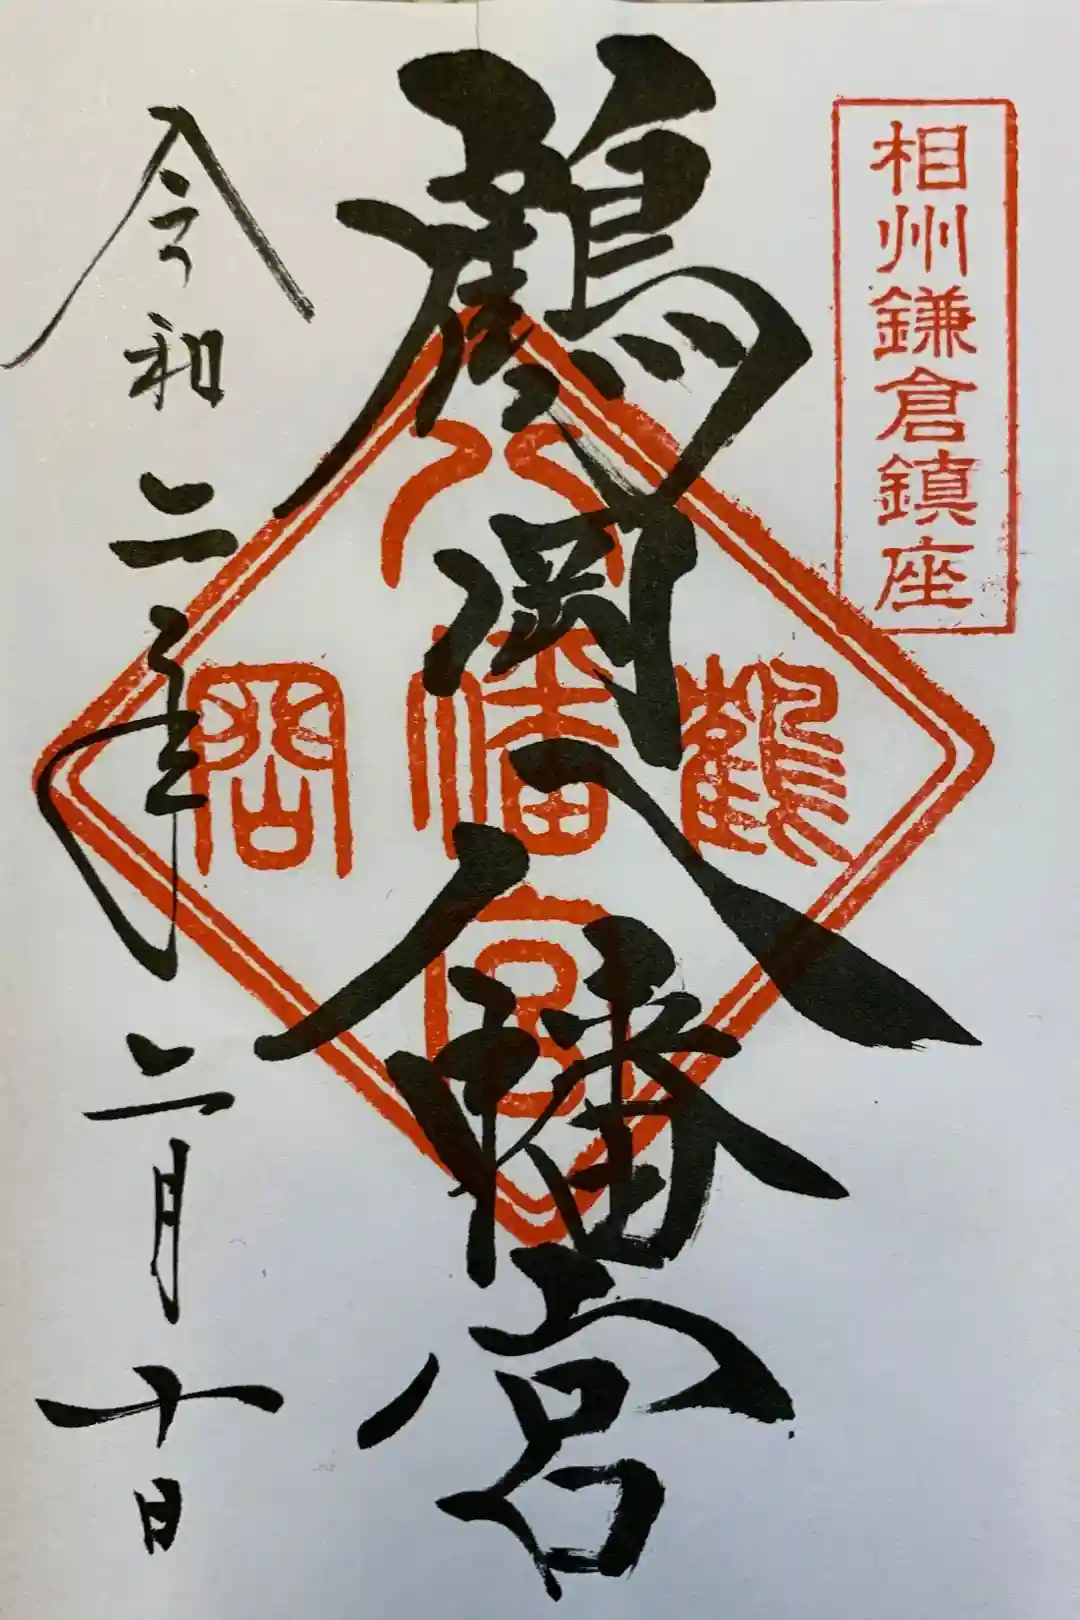 相州鎌倉鎮座
鶴岡八幡宮
鶴岡
八幡宮
令和二年二月十日